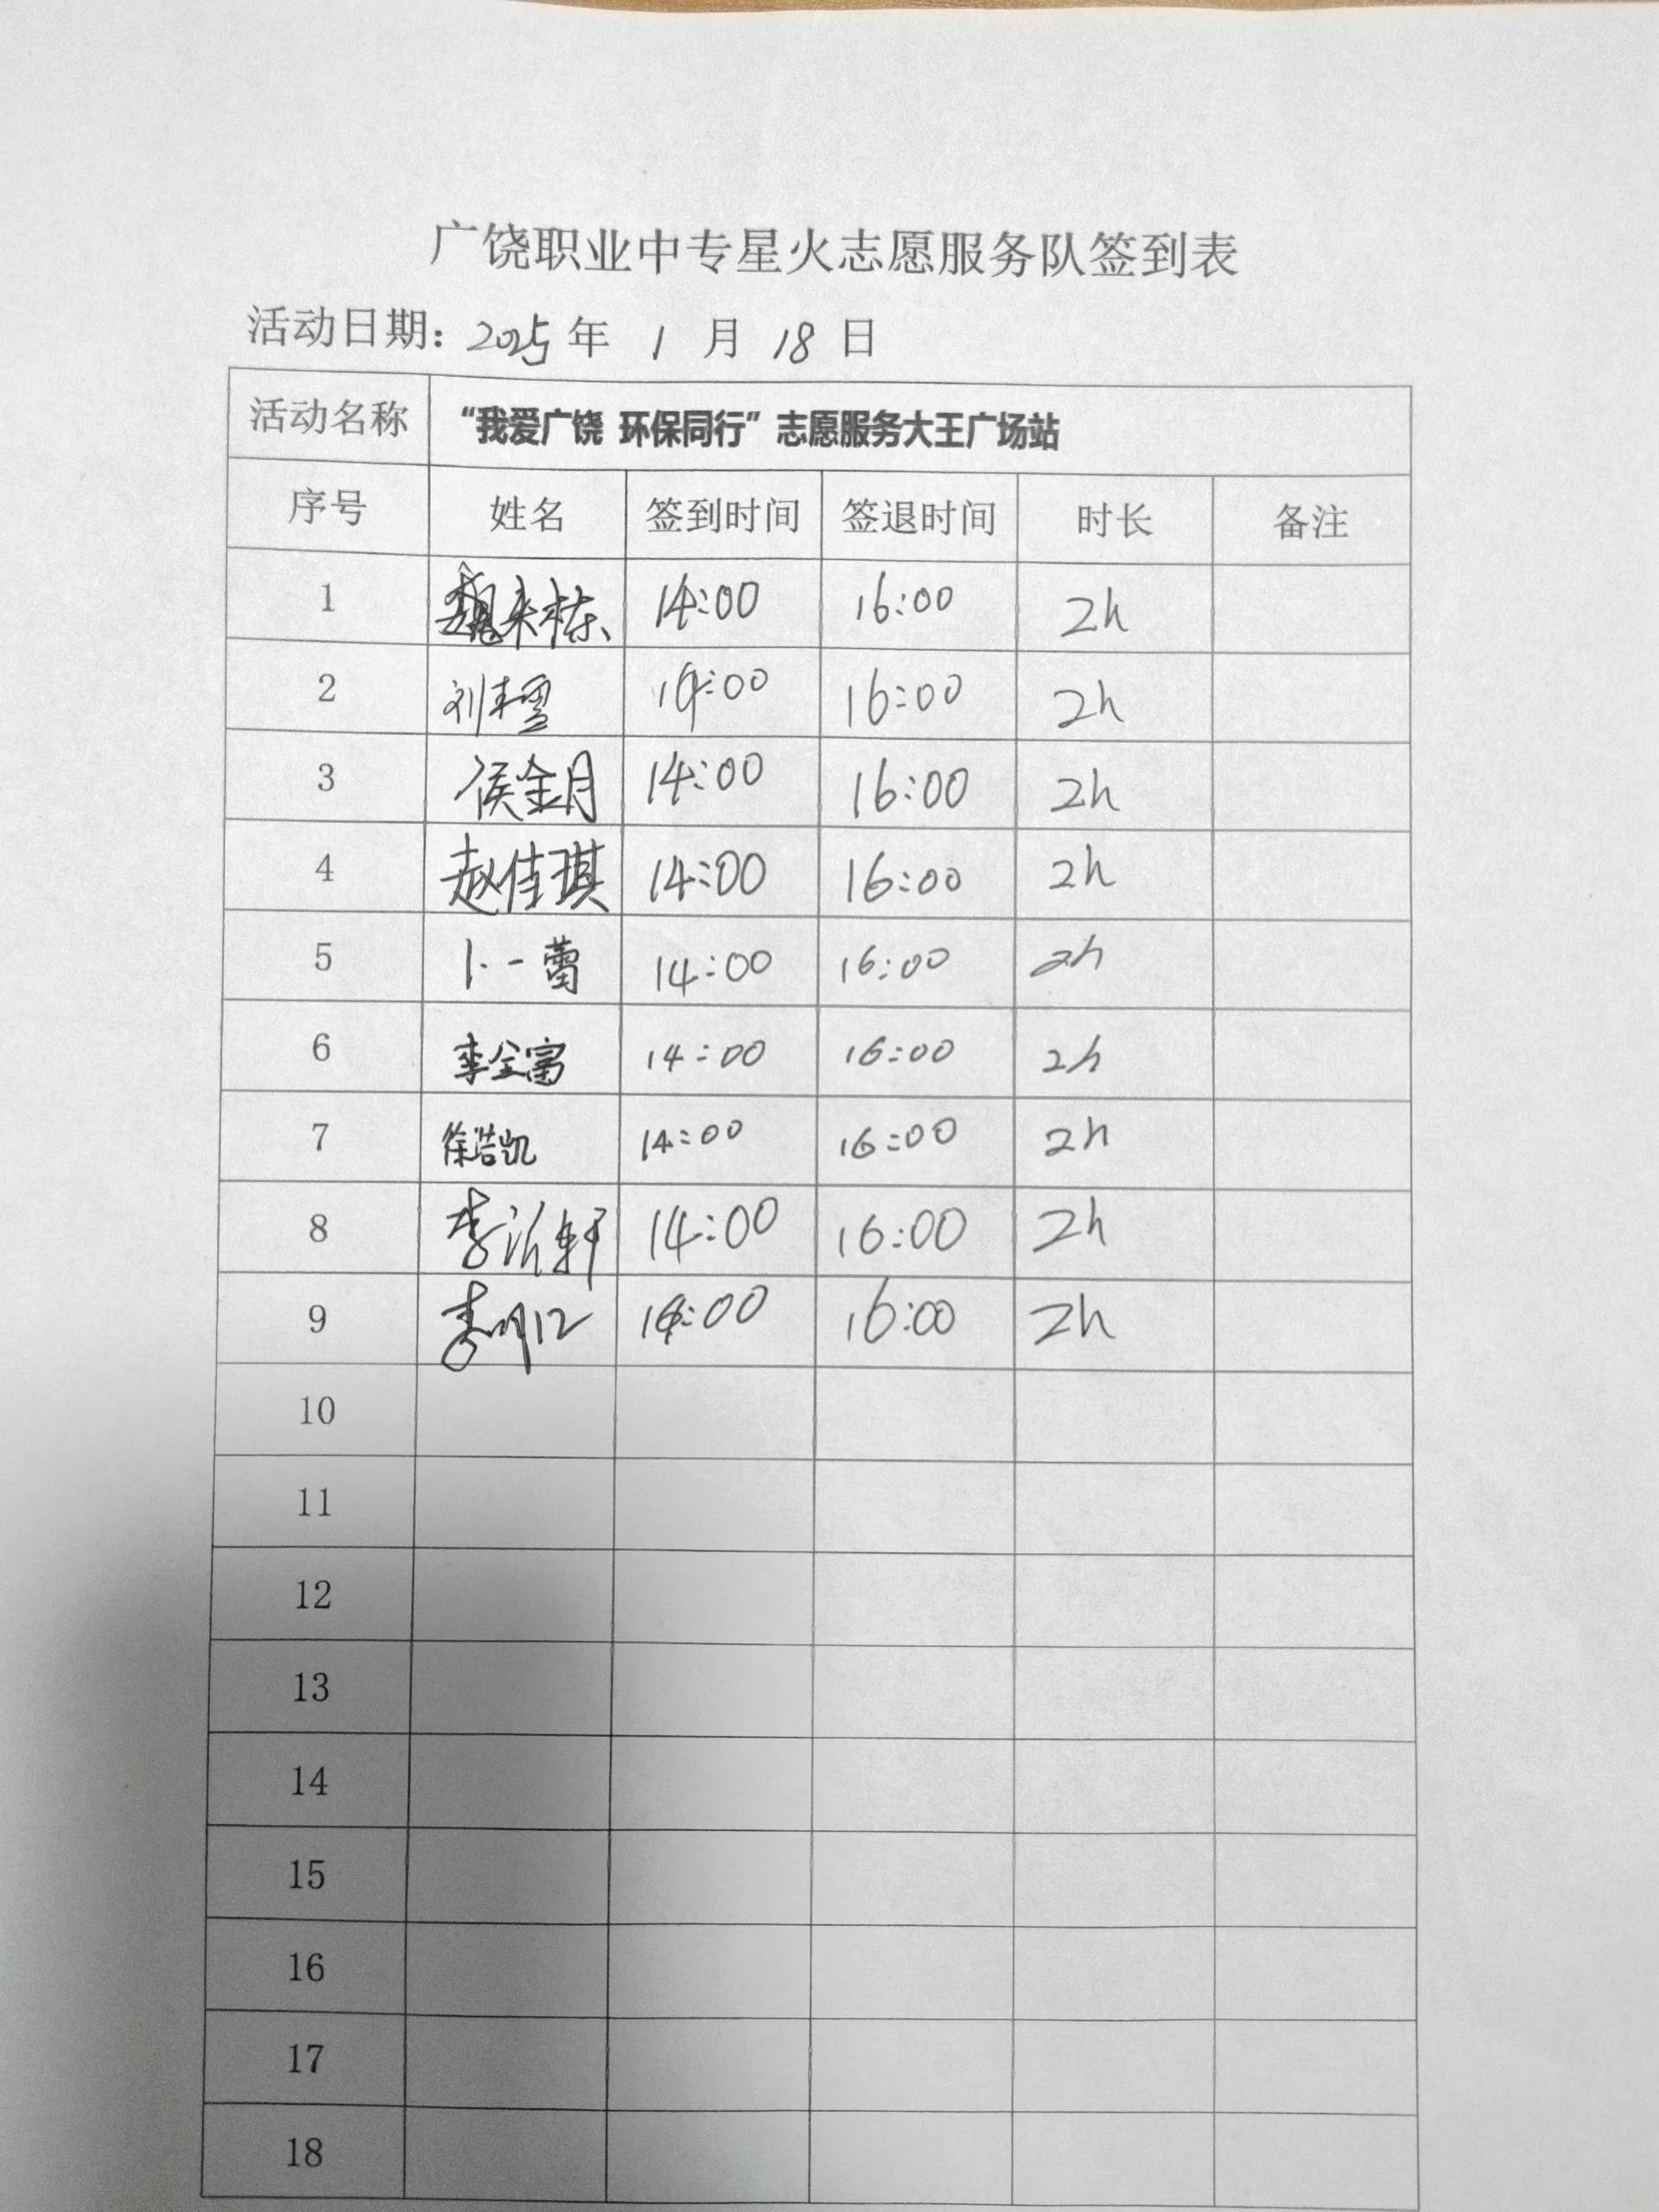 广饶职业中专星火志愿服务队签到表
活动日期：2025年 1 月 18 日
活动名称 “我爱广饶 环保同行”志愿服务大王广场站
序号 姓名 签到时间 签退时间 时长 备注
1 魏来栋 14:00 16:00 2h
2 刘 14:00 16:00 2h
3 侯金月 14:00 16:00 2h
4 赵佳琪 14:00 16:00 2h
5 卜一蕾 14:00 16:00 2h
6 李全富 14:00 16:00 2h
7 徐浩凯 14:00 16:00 2h
8 李沂轩 14:00 16:00 2h
9 李 14:00 16:00 2h
10
11
12
13
14
15
16
17
18